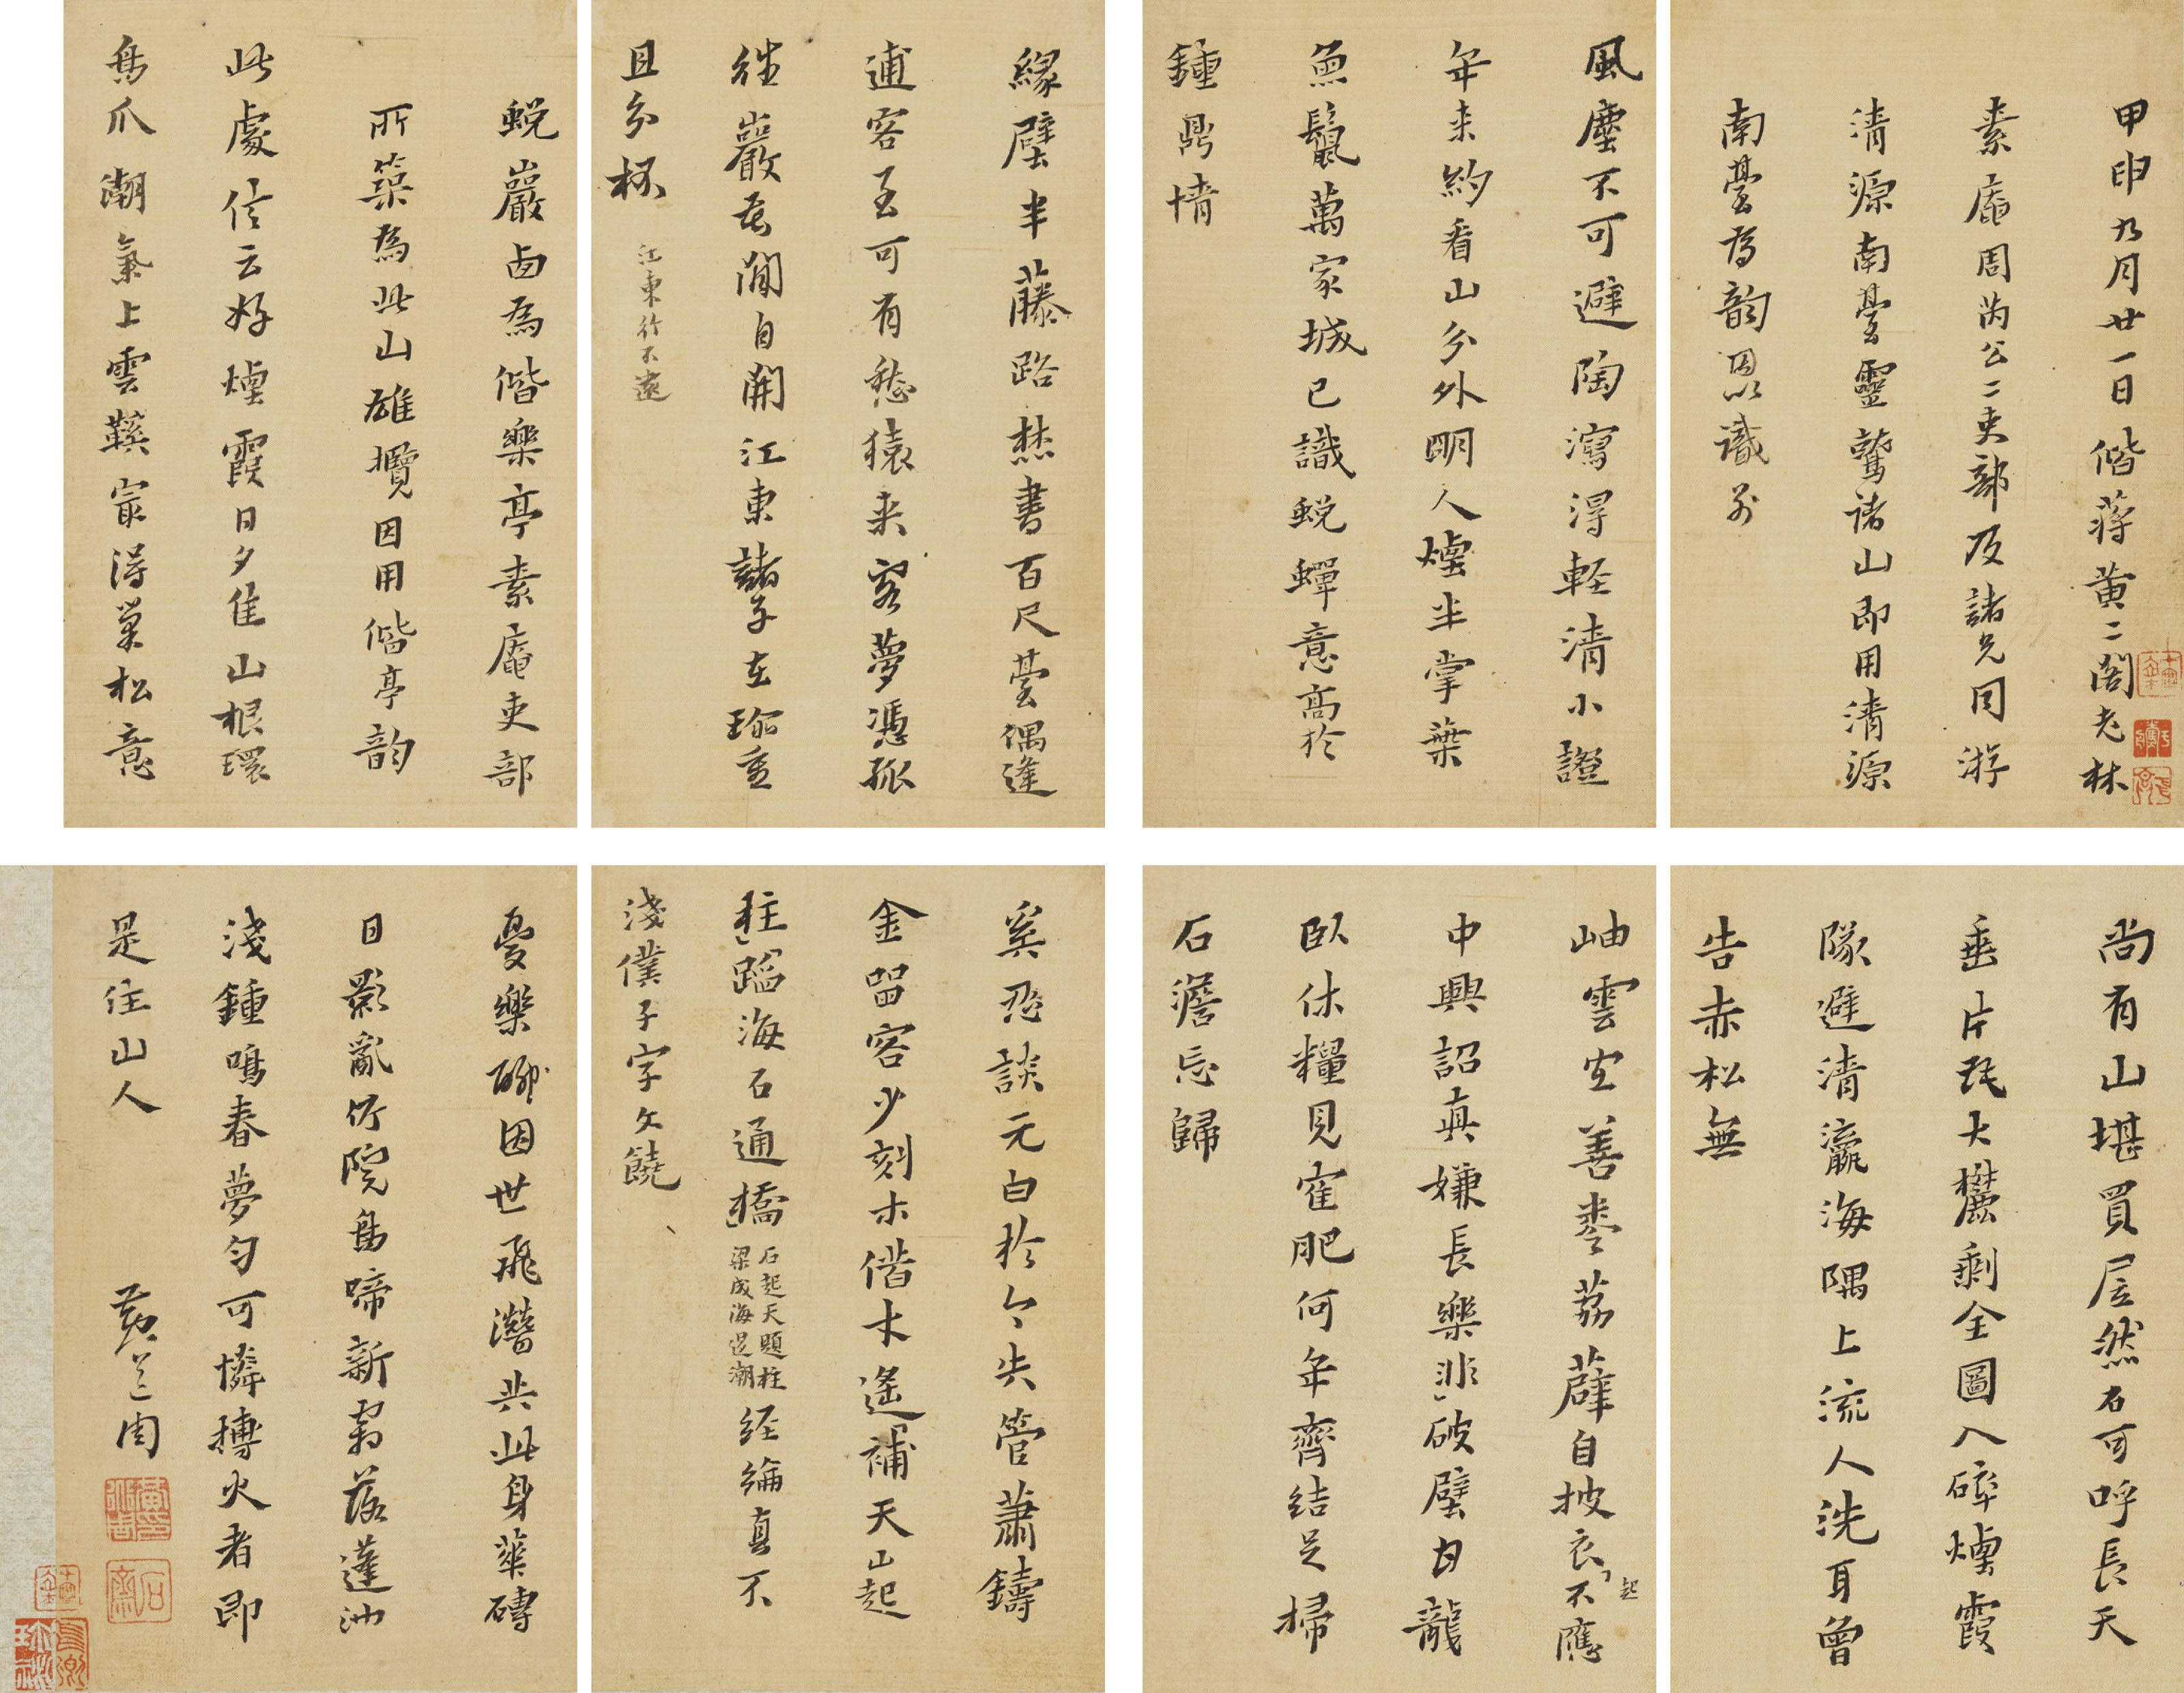 甲申九月廿一日偕蔣黃二閣老林
素庵周芮公二吏部及諸兄同游
清源南臺靈鷲諸山即用清源
南臺為韵因以識別
風塵不可避陶瀉淂輕清小證
年来約看山分外明人煙半掌葉
魚鬣萬家城已識蛻蟬意高於
鍾鼎情
緣壁半藤路焚書百尺臺偶逢
逋客至可有愁猿来客夢憑孤
往巖長閒自開江東諸子在珍重
且分杯 江東行不遠
蛻巖卣為偕樂亭素庵吏部
所築為此山雄攬因用偕亭韵
此處信云好煙霞日夕佳山根環
鳥爪潮氣上雲鞵寂淂巢松意
尚有山堪買居然石可呼長天
垂片瓦大麓剩全圖入磴煙霞
隊避清瀛海隅上流人洗耳曾
告赤松無
岫雲宜善卷荔薜自披衣不應 起
中興詔真嫌長樂非破壁甘龍
臥休糧見寉肥何年齊結足掃
石澹忘歸
奚忍談元白於今失管蕭鑄
金留客少刻木偕木遙補天山起
柱蹈海石通橋 石起天題柱 梁成海退潮 經綸真不
淺僕子字欠饒
憂樂聊因世飛潛共此身華磚
日影亂竹院鳥啼新霜落蓬池
淺鍾鳴春夢勻可憐摶火者即
是住山人 黃道周